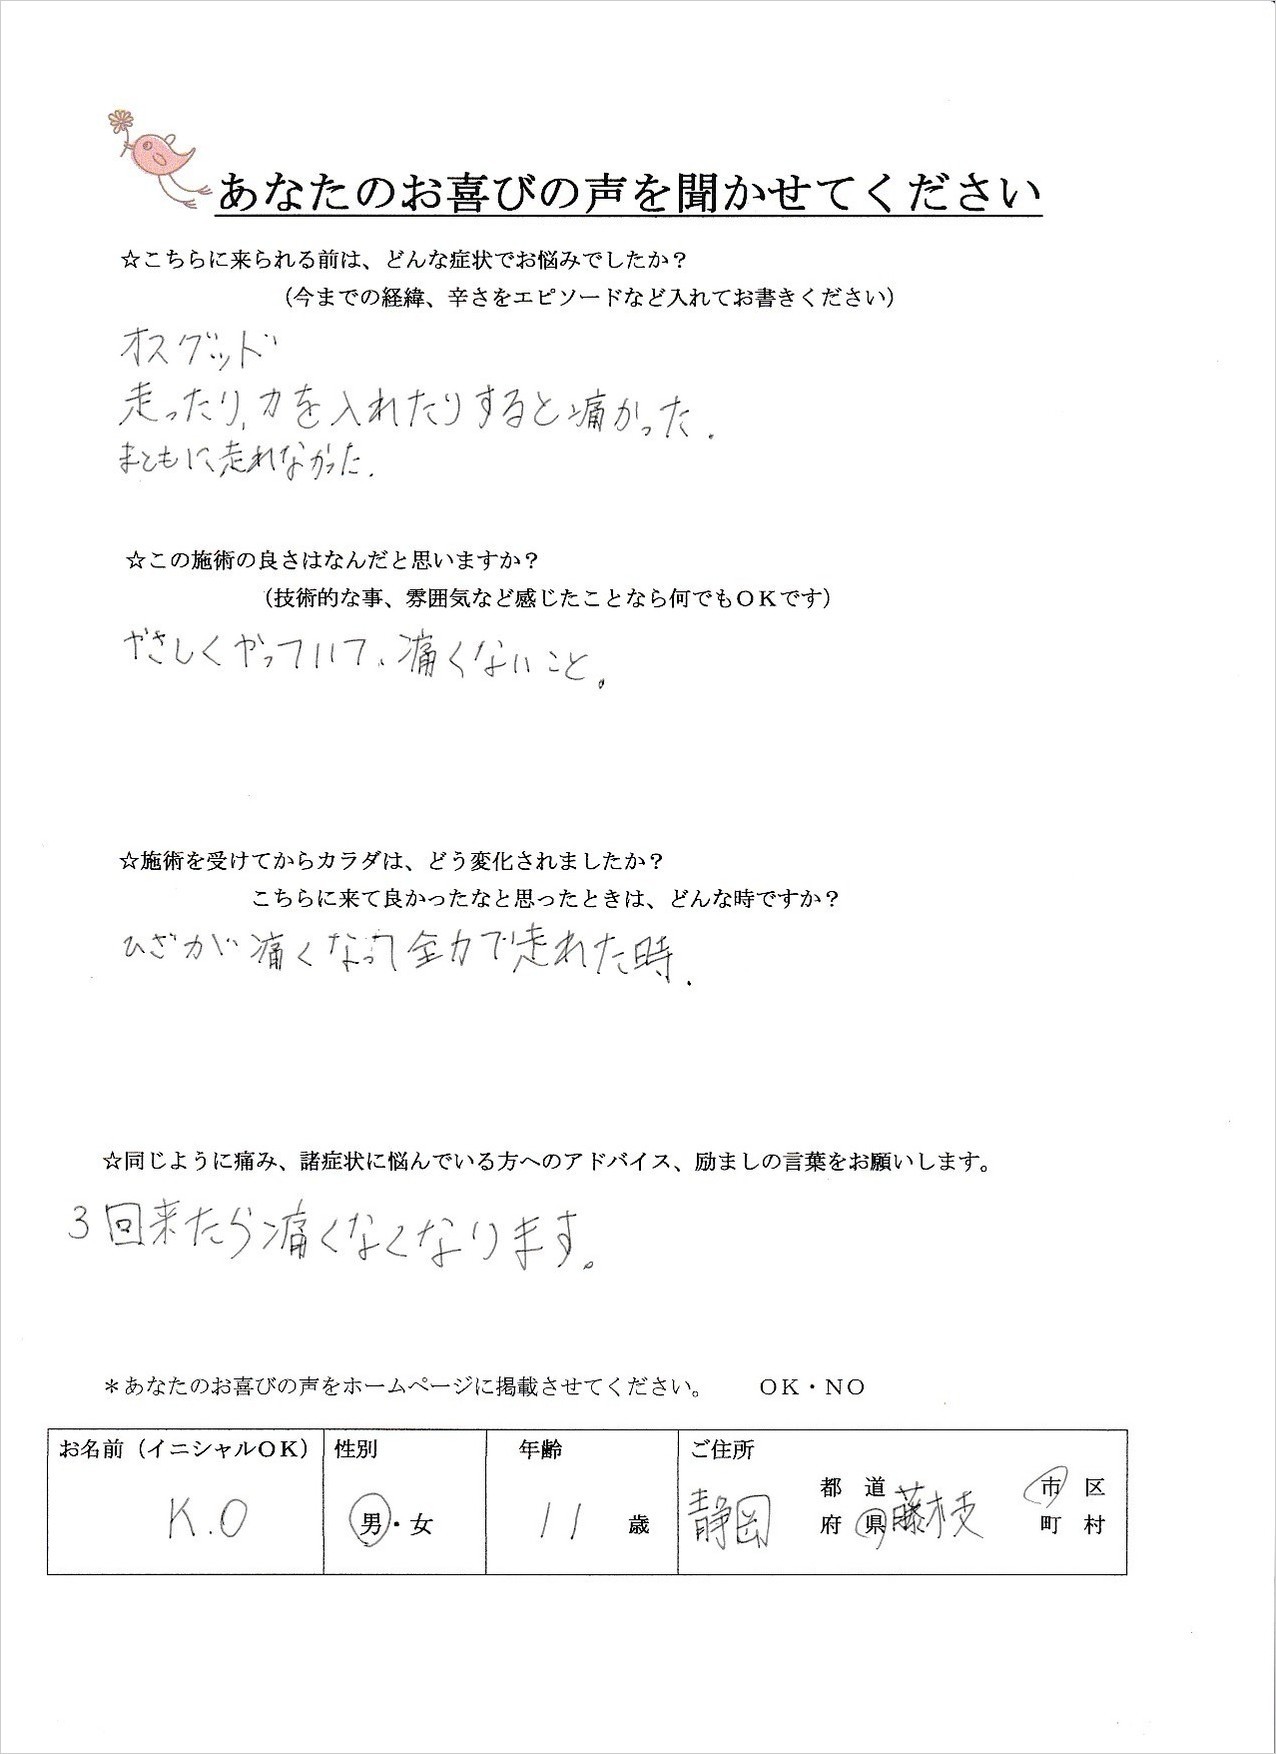 あなたのお喜びの声を聞かせてください
☆こちらに来られる前は、どんな症状でお悩みでしたか？
（今までの経緯、辛さをエピソードなど入れてお書きください）
オスグッド
走ったり、力を入れたりすると痛かった.
まともに走れなかった.
☆この施術の良さはなんだと思いますか？
（技術的な事、雰囲気など感じたことなら何でもＯＫです）
やさしくやっていて、痛くないこと。
☆施術を受けてからカラダは、どう変化されましたか？
こちらに来て良かったなと思ったときは、どんな時ですか？
ひざが痛くなって全力で走れた時.
☆同じように痛み、諸症状に悩んでいる方へのアドバイス、励ましの言葉をお願いします。
3回来たら痛くなくなります。
＊あなたのお喜びの声をホームページに掲載させてください。　ＯＫ・ＮＯ
お名前（イニシャルＯＫ） 性別 年齢 ご住所
都 道 市 区
K.O 男・女 11 歳 静岡 府 県 藤枝 町 村